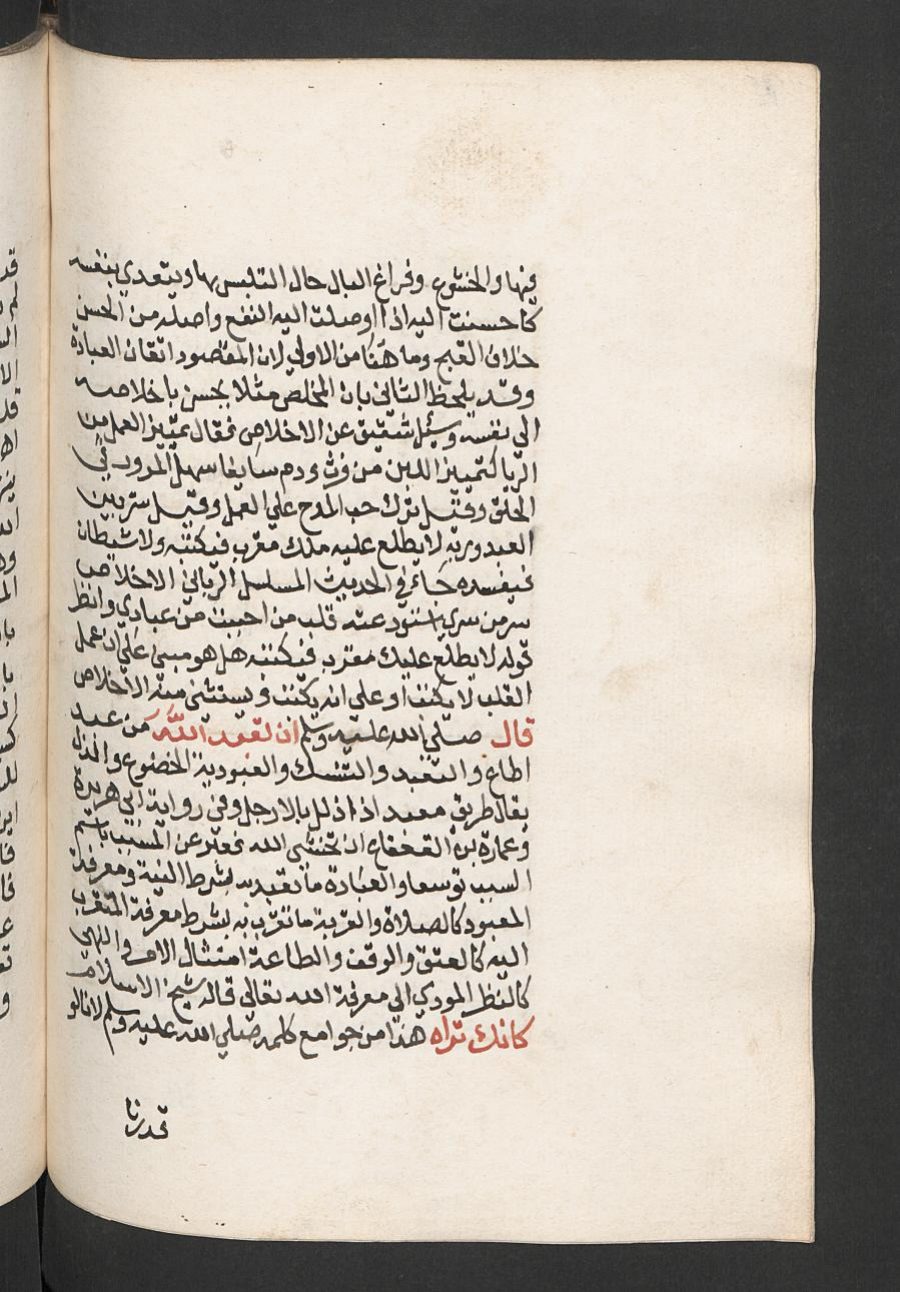 فيها والخشوع وفراغ البال حال التلبس بها ويتعدي بنفسه
كاحسنت اليه اذا اوصلت اليه النفع واصله من الحسن
خلاف القبح وما هنا من الاولي لان المقصود اتقان العبادة
وقد يلحظ الثاني بان المخلص مثلا يحسن باخلاصه
الي نفسه وسئل شقيق عن الاخلاص فقال تمييز العمل من
الريا كتمييز اللبن من فرث ودم سايغا سهل المرور في
الحلق وقيل ترك حب المدح علي العمل وقيل سر بين
العبد وربه لا يطلع عليه ملك مقرب فيكتبه ولا شيطان
فيفسده جاء في الحديث المسلسل الرباني الاخلاص
سر من سري استودعته قلب من احببت من عبادي وانظر
قوله لا يطلع عليك مقرب فيكتبه هل هو مبني علي ان عمل
القلب لا يكتب او علي انه يكتب ويستثني منه الاخلاص
قال صلي الله عليه وسلم ان تعبد الله من عبد
اطاع والتعبد والتنسك والعبودية الخضوع والذل
يقال طريق معبد اذا ذلل بالارجل وفي رواية ابي هريرة
وعمارة بن القعقاع ان تخشي الله فعبر عن المسبب باسم
السبب توسعا والعبادة ما تعبد به بشرط النية ومعرفة
المعبود كالصلاة والقربة ما تقرب به بشرط معرفة المتقرب
اليه كالعتق والوقف والطاعة امتثال الامر والنهي
كالنظر المودي الي معرفة الله تعالي قاله شيخ الاسلام
كانك تراه هذا من جوامع كلمه صلي الله عليه وسلم لانا لو
قدرنا